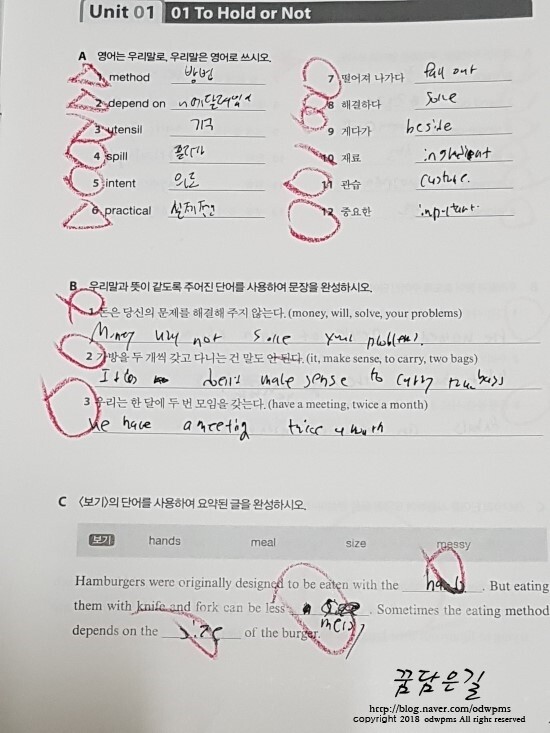 Unit 01 01 To Hold or Not
A 영어는 우리말로, 우리말은 영어로 쓰시오.
1 method 방법
2 depend on
3 utensil 기구
4 spill 흘리다
5 intent 의도
6 practical 실제적인
7 떨어져 나가다 fall out
8 해결하다 solve
9 게다가 beside
10 재료 ingredient
11 관습 custure.
12 중요한
B 우리말과 뜻이 같도록 주어진 단어를 사용하여 문장을 완성하시오.
1 돈은 당신의 문제를 해결해 주지 않는다. (money, will, solve, your problems)
Money will not solve your problems.
2 가방을 두 개씩 갖고 다니는 건 말도 안 된다. (it, make sense, to carry, two bags)
doesn't make sense to carry two bags
3 우리는 한 달에 두 번 모임을 갖는다. (have a meeting, twice a month)
We have a meeting twice a month
C 〈보기〉의 단어를 사용하여 요약된 글을 완성하시오.
보기 hands meal size messy
Hamburgers were originally designed to be eaten with the hands. But eating
them with knife and fork can be less messy. Sometimes the eating method
depends on the size of the burger.
꿈담은길
http://blog.naver.com/odwpms
copyright 2018 odwpms All right reserved